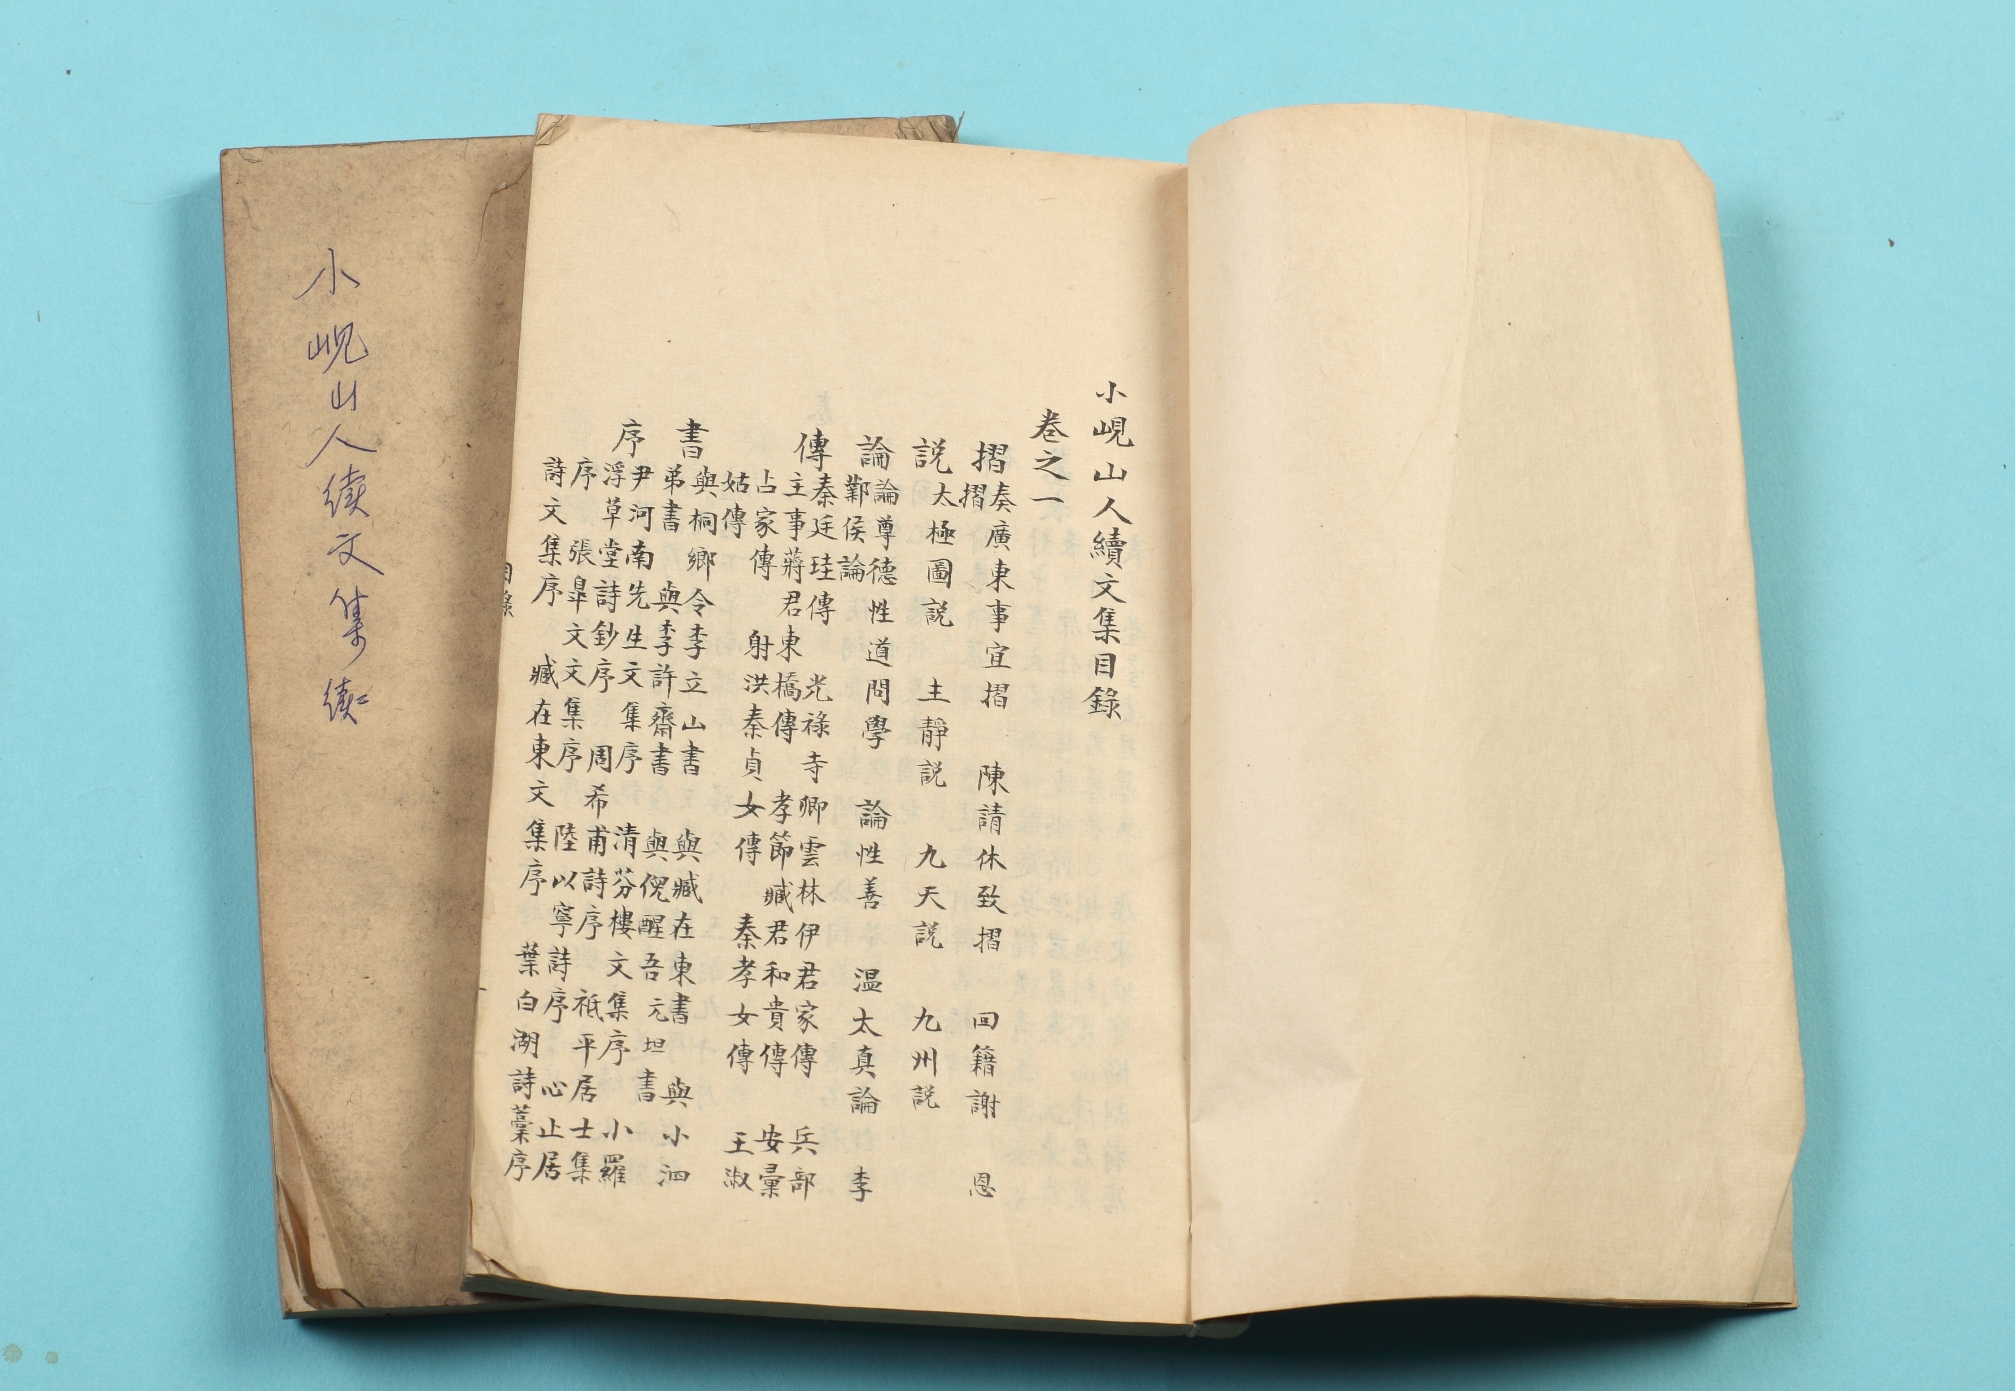 小峴山人續文集目錄
卷之一
摺奏廣東事宜摺 陳請休致摺 回籍謝 恩
摺
説太極圖説 主靜説 九天説 九州説
論論尊德性道問學 論性善 温太真論 李
鄴侯論
傳秦廷珪傳 光祿寺卿雲林伊君家傳 兵部
主事蔣君東橋傳 孝節臧君和貴傳 安彙
占家傳 射洪秦貞女傳 秦孝女傳 王淑
姑傳
書與桐鄉令李立山書 與臧在東書 與小泗
弟書 與李許齋書 與倪醒吾元坦書
序尹河南先生文集序 清芬樓文集序 小羅
浮草堂詩鈔序 周希甫詩序 祗平居士集
序 張臯文文集序 陸以寧詩序 心止居
詩文集序 臧在東文集序 葉白湖詩藁序
目錄
小峴山人續文集 續二